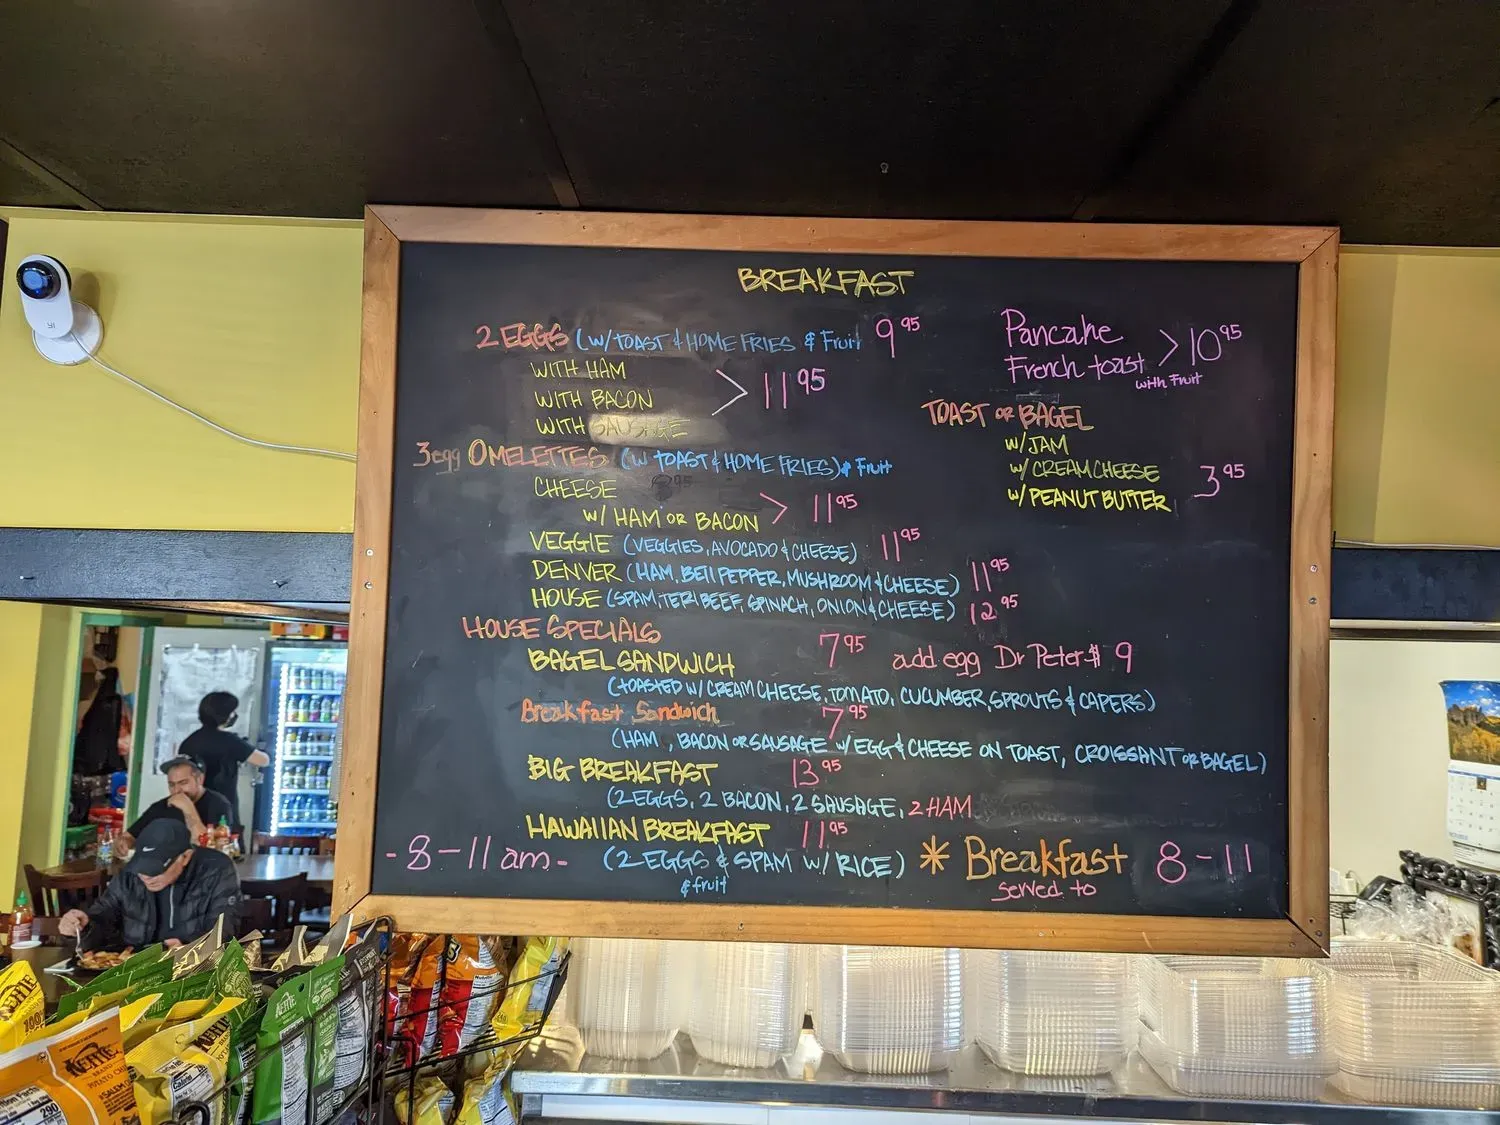 BREAKFAST
2 EGGS (W/ TOAST & HOME FRIES & Fruit 9 95
WITH HAM
WITH BACON > 11 95
WITH SAUSAGE
3egg OMELETTES (W TOAST & HOME FRIES) & Fruit
CHEESE
W/ HAM OR BACON > 11 95
VEGGIE (VEGGIES, AVOCADO & CHEESE) 11 95
DENVER (HAM, BELL PEPPER, MUSHROOM & CHEESE) 11 95
HOUSE (SPAM, TERI BEEF, SPINACH, ONION & CHEESE) 12 95
HOUSE SPECIALS
BAGEL SANDWICH 7 95 add egg Dr Peter $ 9
(TOASTED W/ CREAM CHEESE, TOMATO, CUCUMBER, SPROUTS & CAPERS)
Breakfast Sandwich 7 95
(HAM, BACON OR SAUSAGE W/ EGG & CHEESE ON TOAST, CROISSANT OR BAGEL)
BIG BREAKFAST 13 95
(2 EGGS, 2 BACON, 2 SAUSAGE, 2 HAM
HAWAIIAN BREAKFAST 11 95
- 8 - 11 am - (2 EGGS & SPAM W/ RICE)
& fruit
* Breakfast 8 - 11
served to
Pancake
French toast > 10 95
with Fruit
TOAST OR BAGEL
W/ JAM
W/ CREAM CHEESE 3 95
W/ PEANUT BUTTER
YI
KETTLE
BRAND
POTATO CHIPS
290
KETTLE